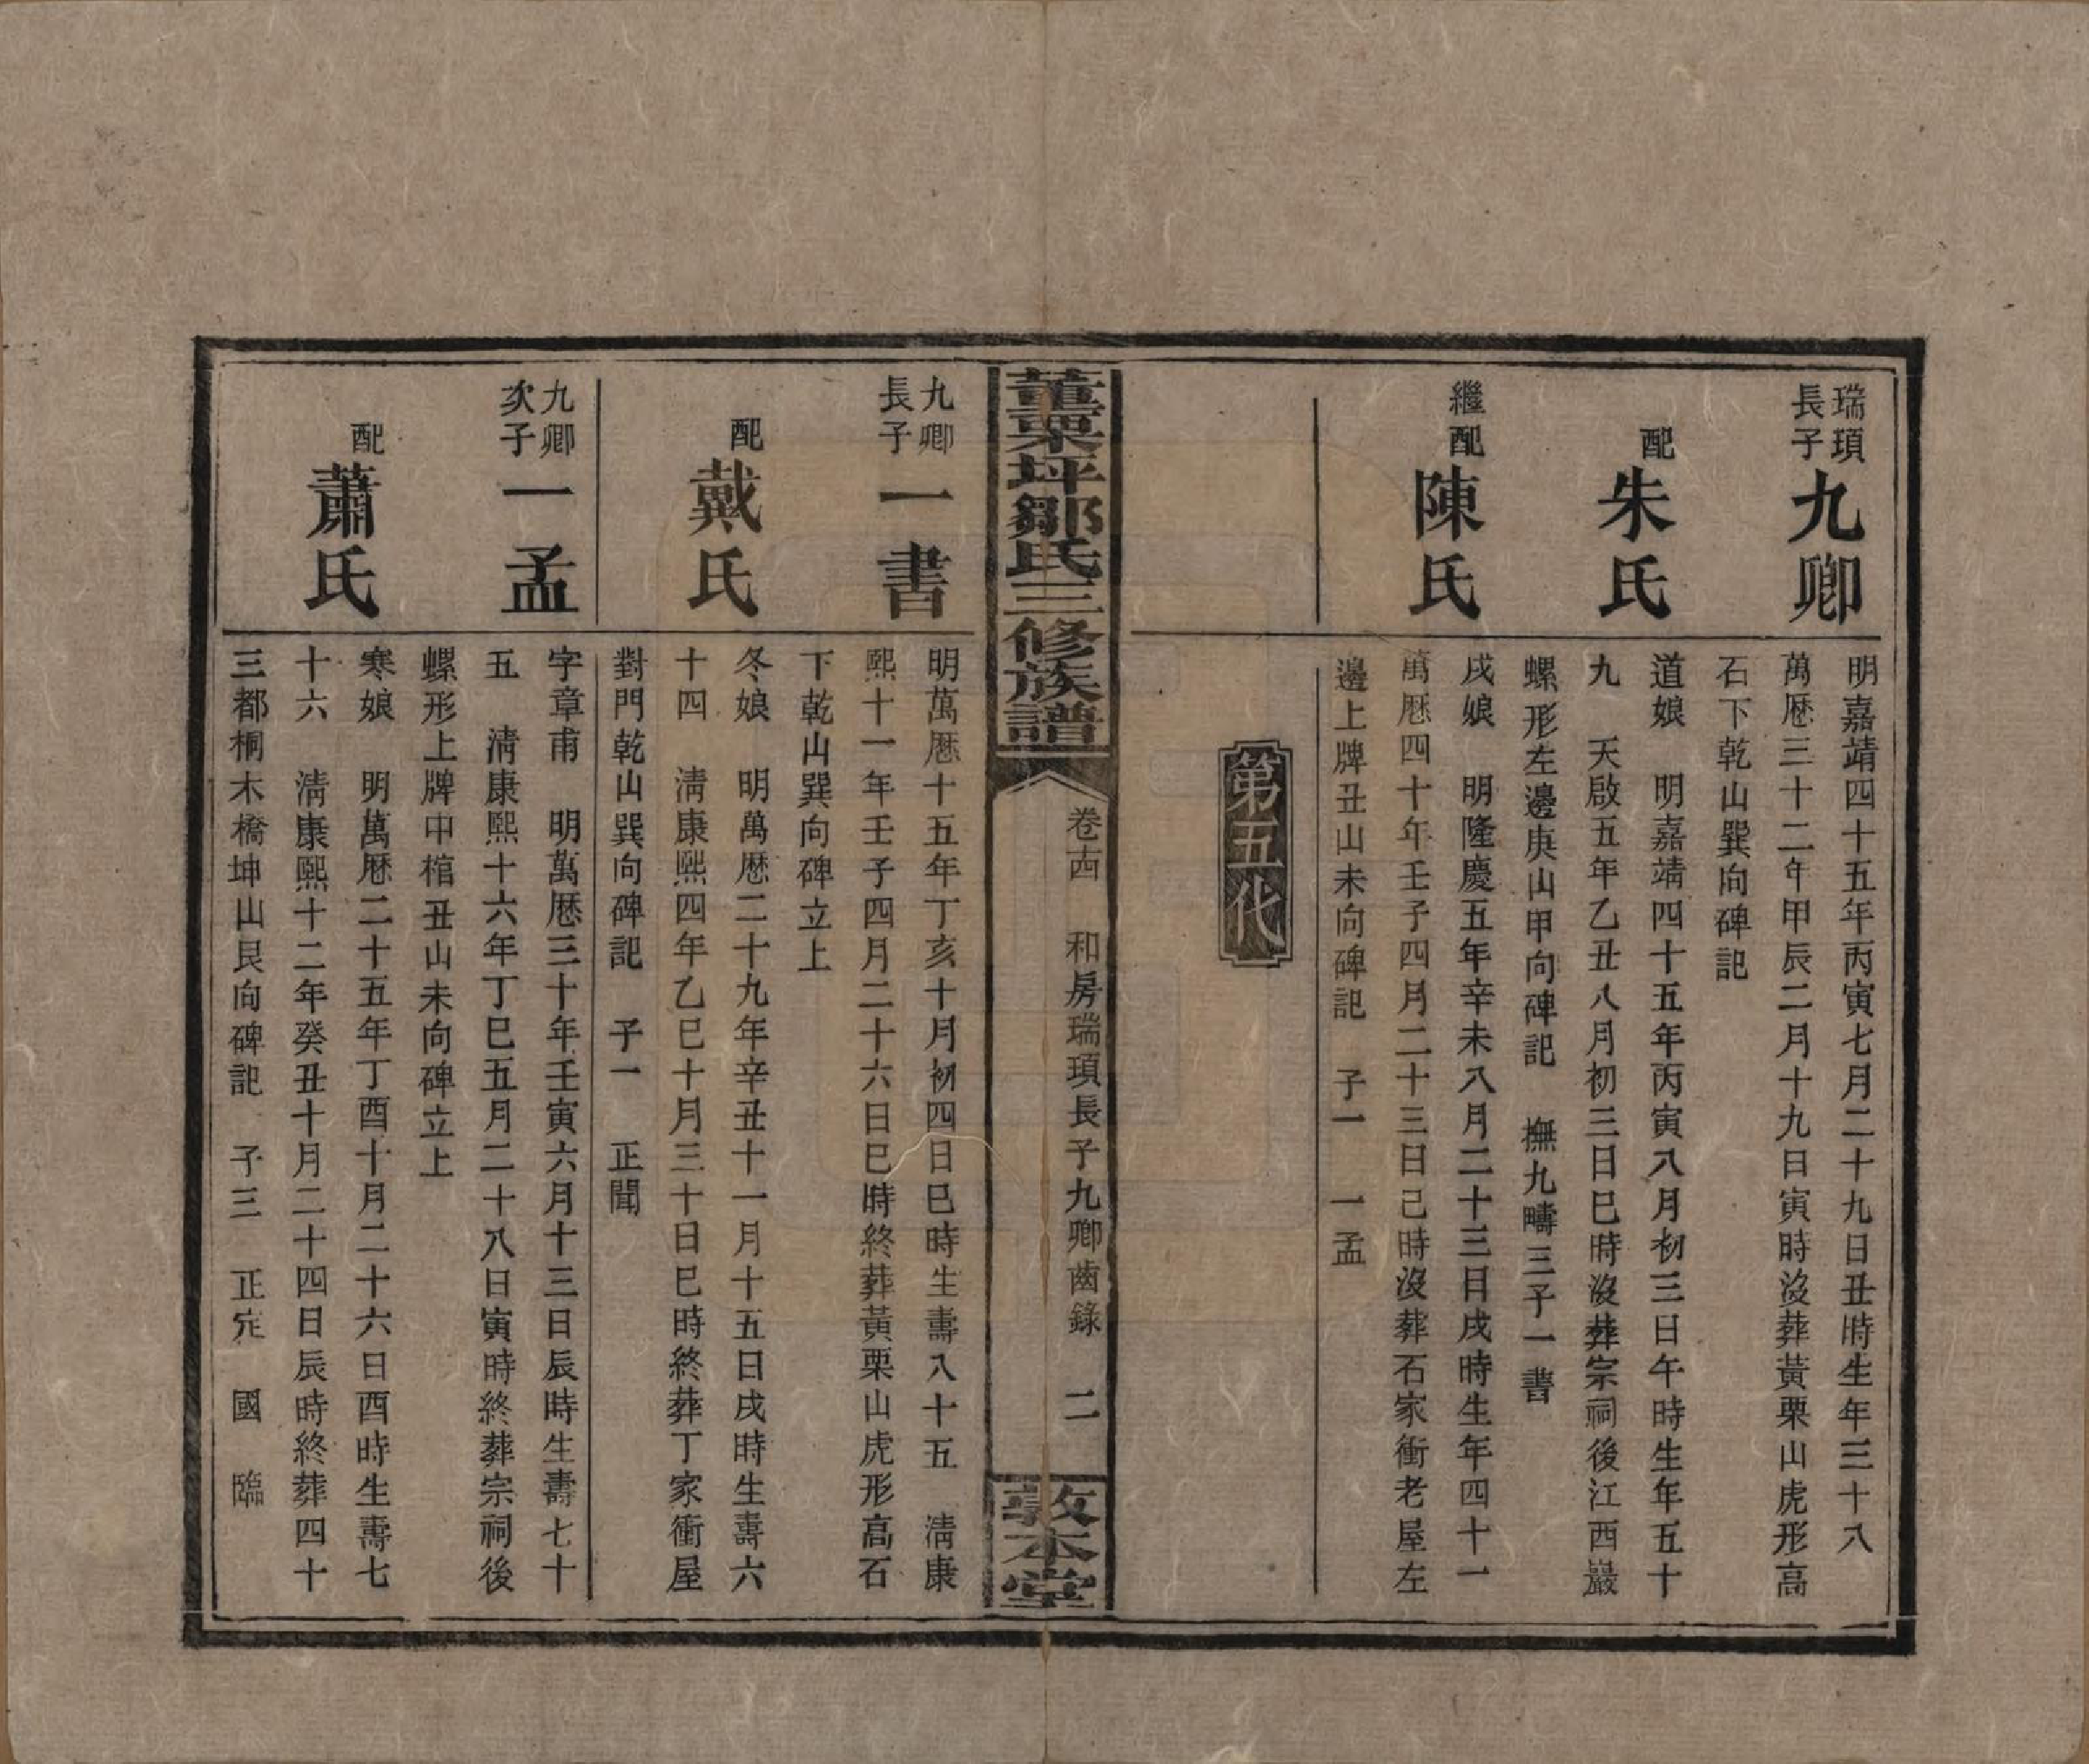 瑞項
長子
九卿
明嘉靖四十五年丙寅七月二十九日丑時生年三十八
萬厯三十二年甲辰二月十九日寅時沒葬黃栗山虎形高
石下乾山巽向碑記
配
朱氏
道娘　明嘉靖四十五年丙寅八月初三日午時生年五十
九　天啟五年乙丑八月初三日巳時沒葬宗祠後江西巖
螺形左邊庚山甲向碑記　撫九疇三子一書
繼配
陳氏
戌娘　明隆慶五年辛未八月二十三日戌時生年四十一
萬厯四十年壬子四月二十三日己時沒葬石家衝老屋左
邊上牌丑山未向碑記　子一　一孟
第五代
董栗坪鄒氏三修族譜
卷十四　和房瑞項長子九卿齒錄　二
敦本堂
九卿
長子
一書
明萬厯十五年丁亥十月初四日巳時生壽八十五　清康
熙十一年壬子四月二十六日巳時終葬黃栗山虎形高石
下乾山巽向碑立上
配
戴氏
冬娘　明萬厯二十九年辛丑十一月十五日戌時生壽六
十四　清康熙四年乙巳十月三十日巳時終葬丁家衝屋
對門乾山巽向碑記　子一　正聞
九卿
次子
一孟
字章甫　明萬厯三十年壬寅六月十三日辰時生壽七十
五　清康熙十六年丁巳五月二十八日寅時終葬宗祠後
螺形上牌中棺丑山未向碑立上
配
蕭氏
寒娘　明萬厯二十五年丁酉十月二十六日酉時生壽七
十六　清康熙十二年癸丑十月二十四日辰時終葬四十
三都桐木橋坤山艮向碑記　子三　正完　國　臨